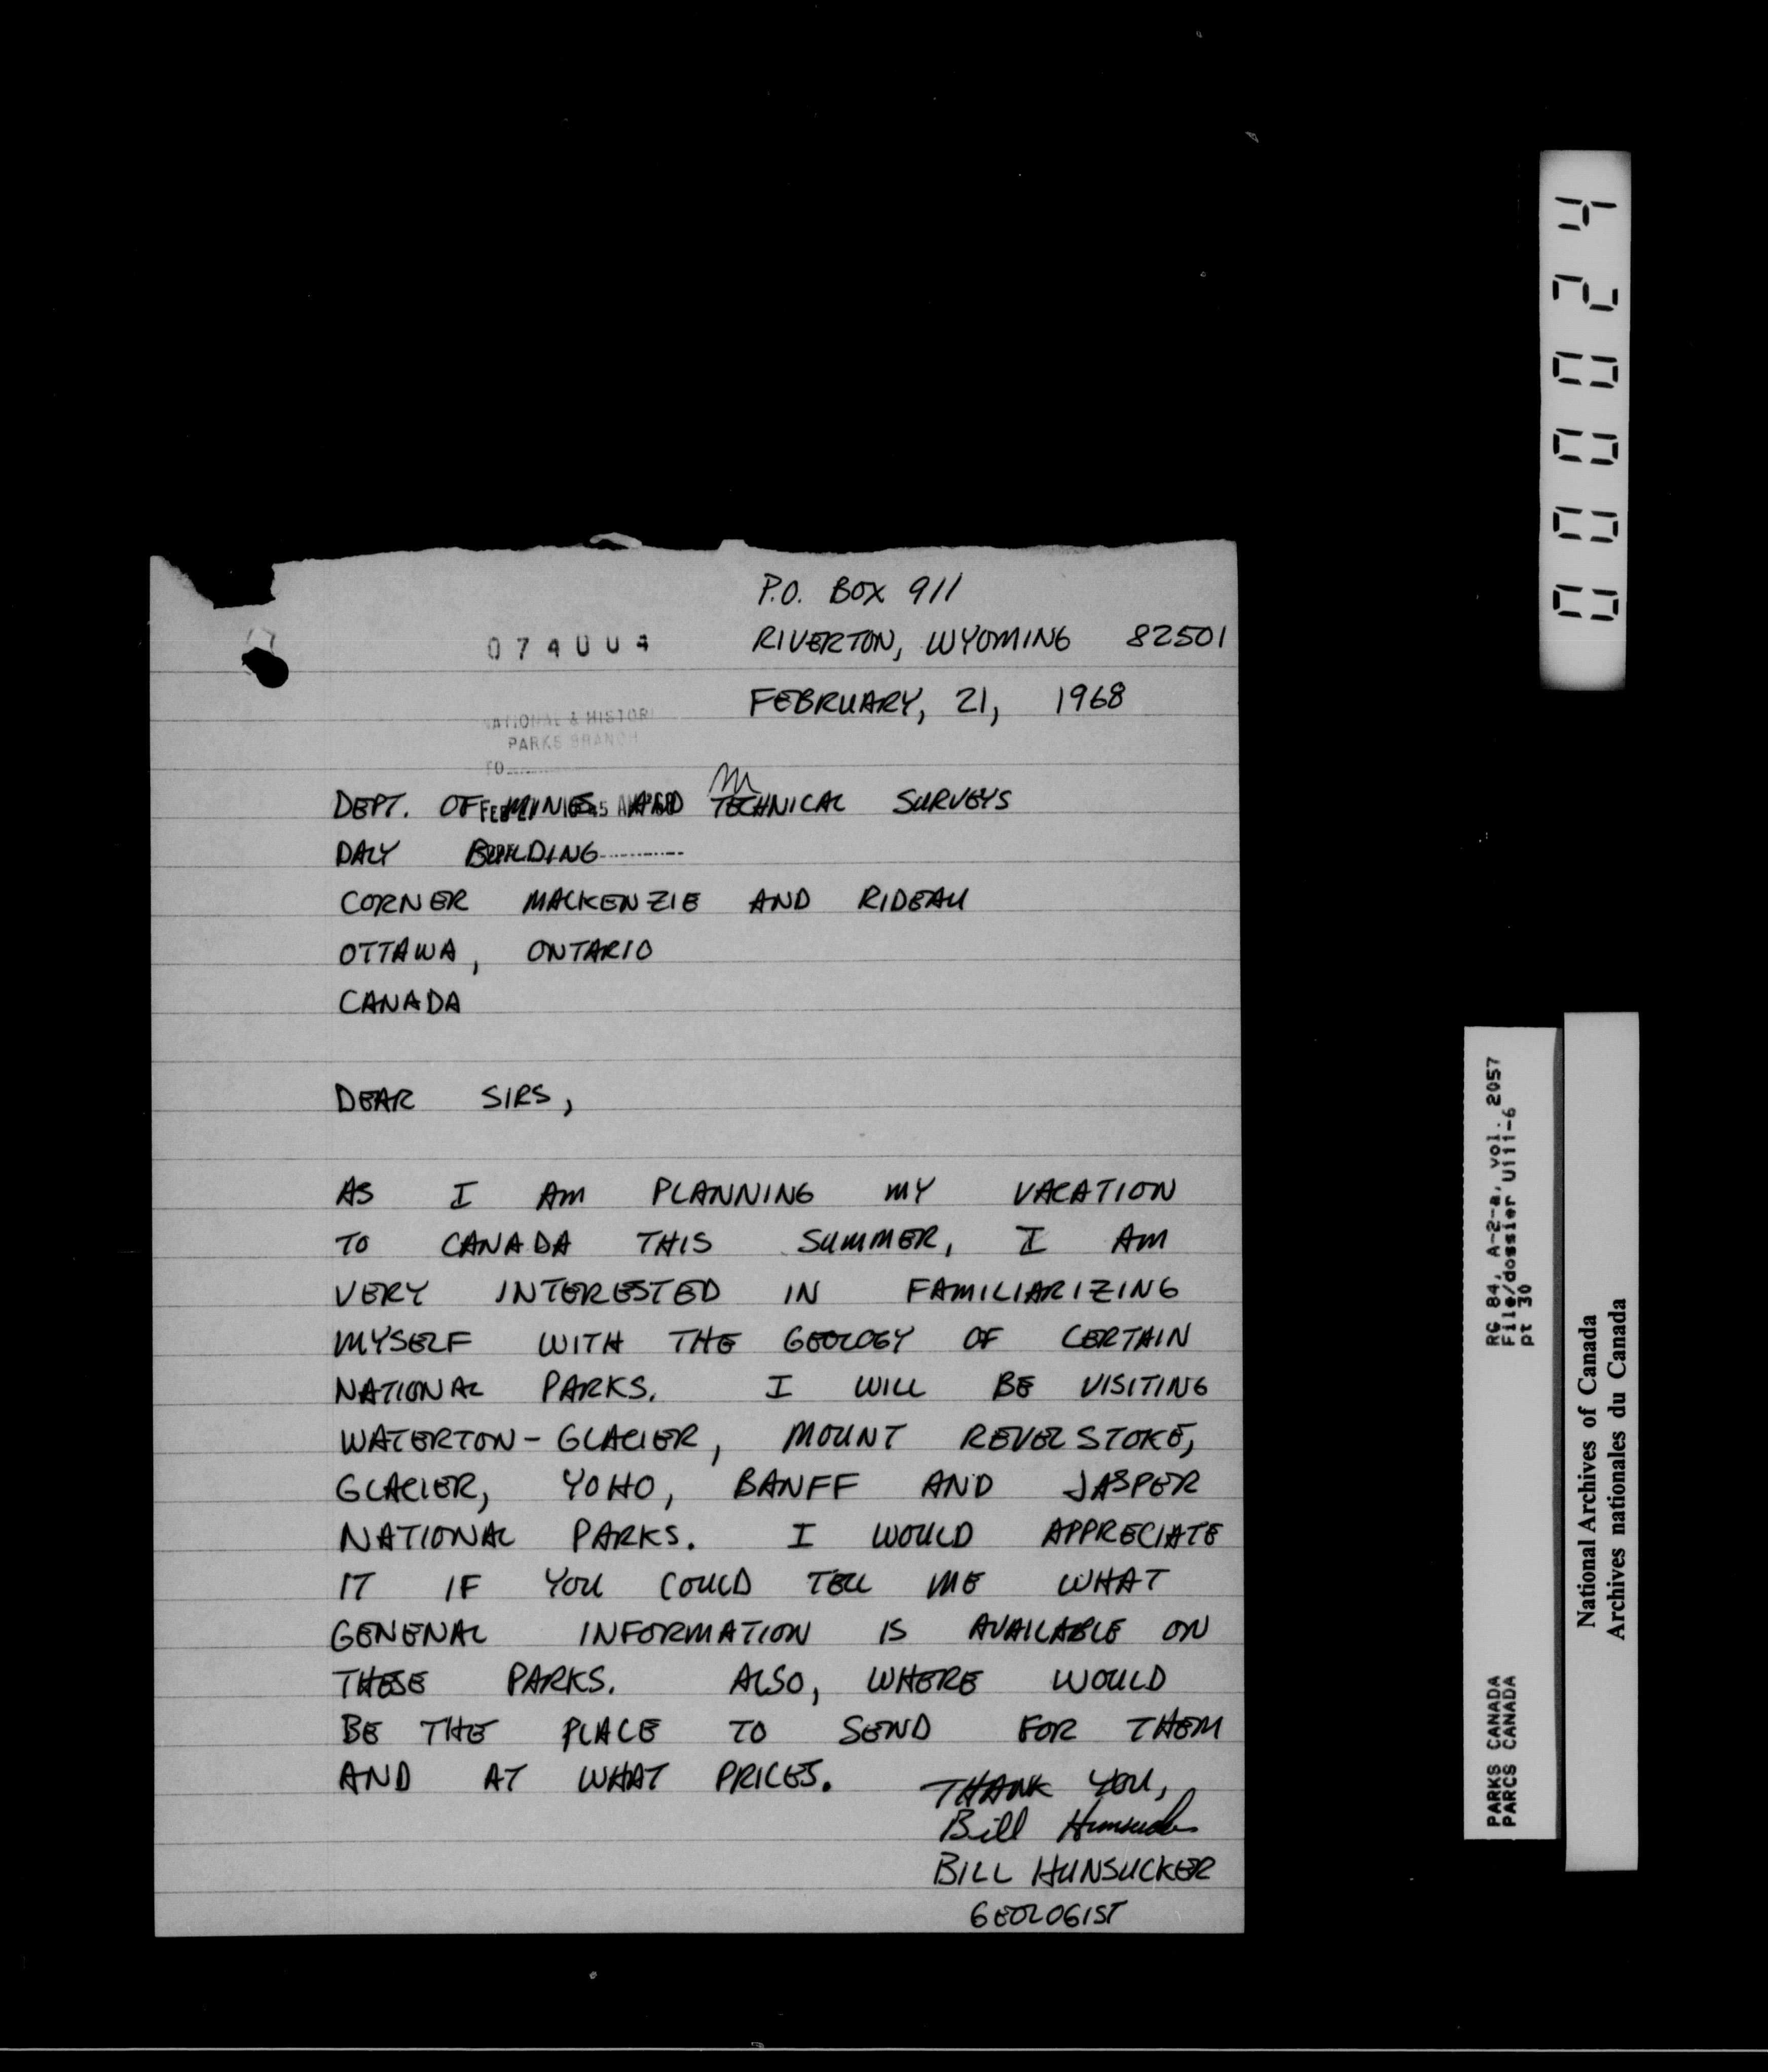 P.O. BOX 911
074004
RIVERTON, WYOMING 82501
FEBRUARY, 21, 1968
NATIONAL & HISTORI
PARKS BRANCH
TO
DEPT. OF MINES AND TECHNICAL SURVEYS
DALY BUILDING
CORNER MACKENZIE AND RIDEAU
OTTAWA, ONTARIO
CANADA
DEAR SIRS,
AS I AM PLANNING MY VACATION
TO CANADA THIS SUMMER, I AM
VERY INTERESTED IN FAMILIARIZING
MYSELF WITH THE GEOLOGY OF CERTAIN
NATIONAL PARKS. I WILL BE VISITING
WATERTON-GLACIER, MOUNT REVELSTOKE,
GLACIER, YOHO, BANFF AND JASPER
NATIONAL PARKS. I WOULD APPRECIATE
IT IF YOU COULD TELL ME WHAT
GENENAL INFORMATION IS AVAILABLE ON
THESE PARKS. ALSO, WHERE WOULD
BE THE PLACE TO SEND FOR THEM
AND AT WHAT PRICES.
THANK YOU,
Bill Hunsucker
BILL HUNSUCKER
GEOLOGIST
000024
RG 84, A-2-a, vol. 2057
File/dossier U111-6
pt 30
PARKS CANADA
PARCS CANADA
National Archives of Canada
Archives nationales du Canada